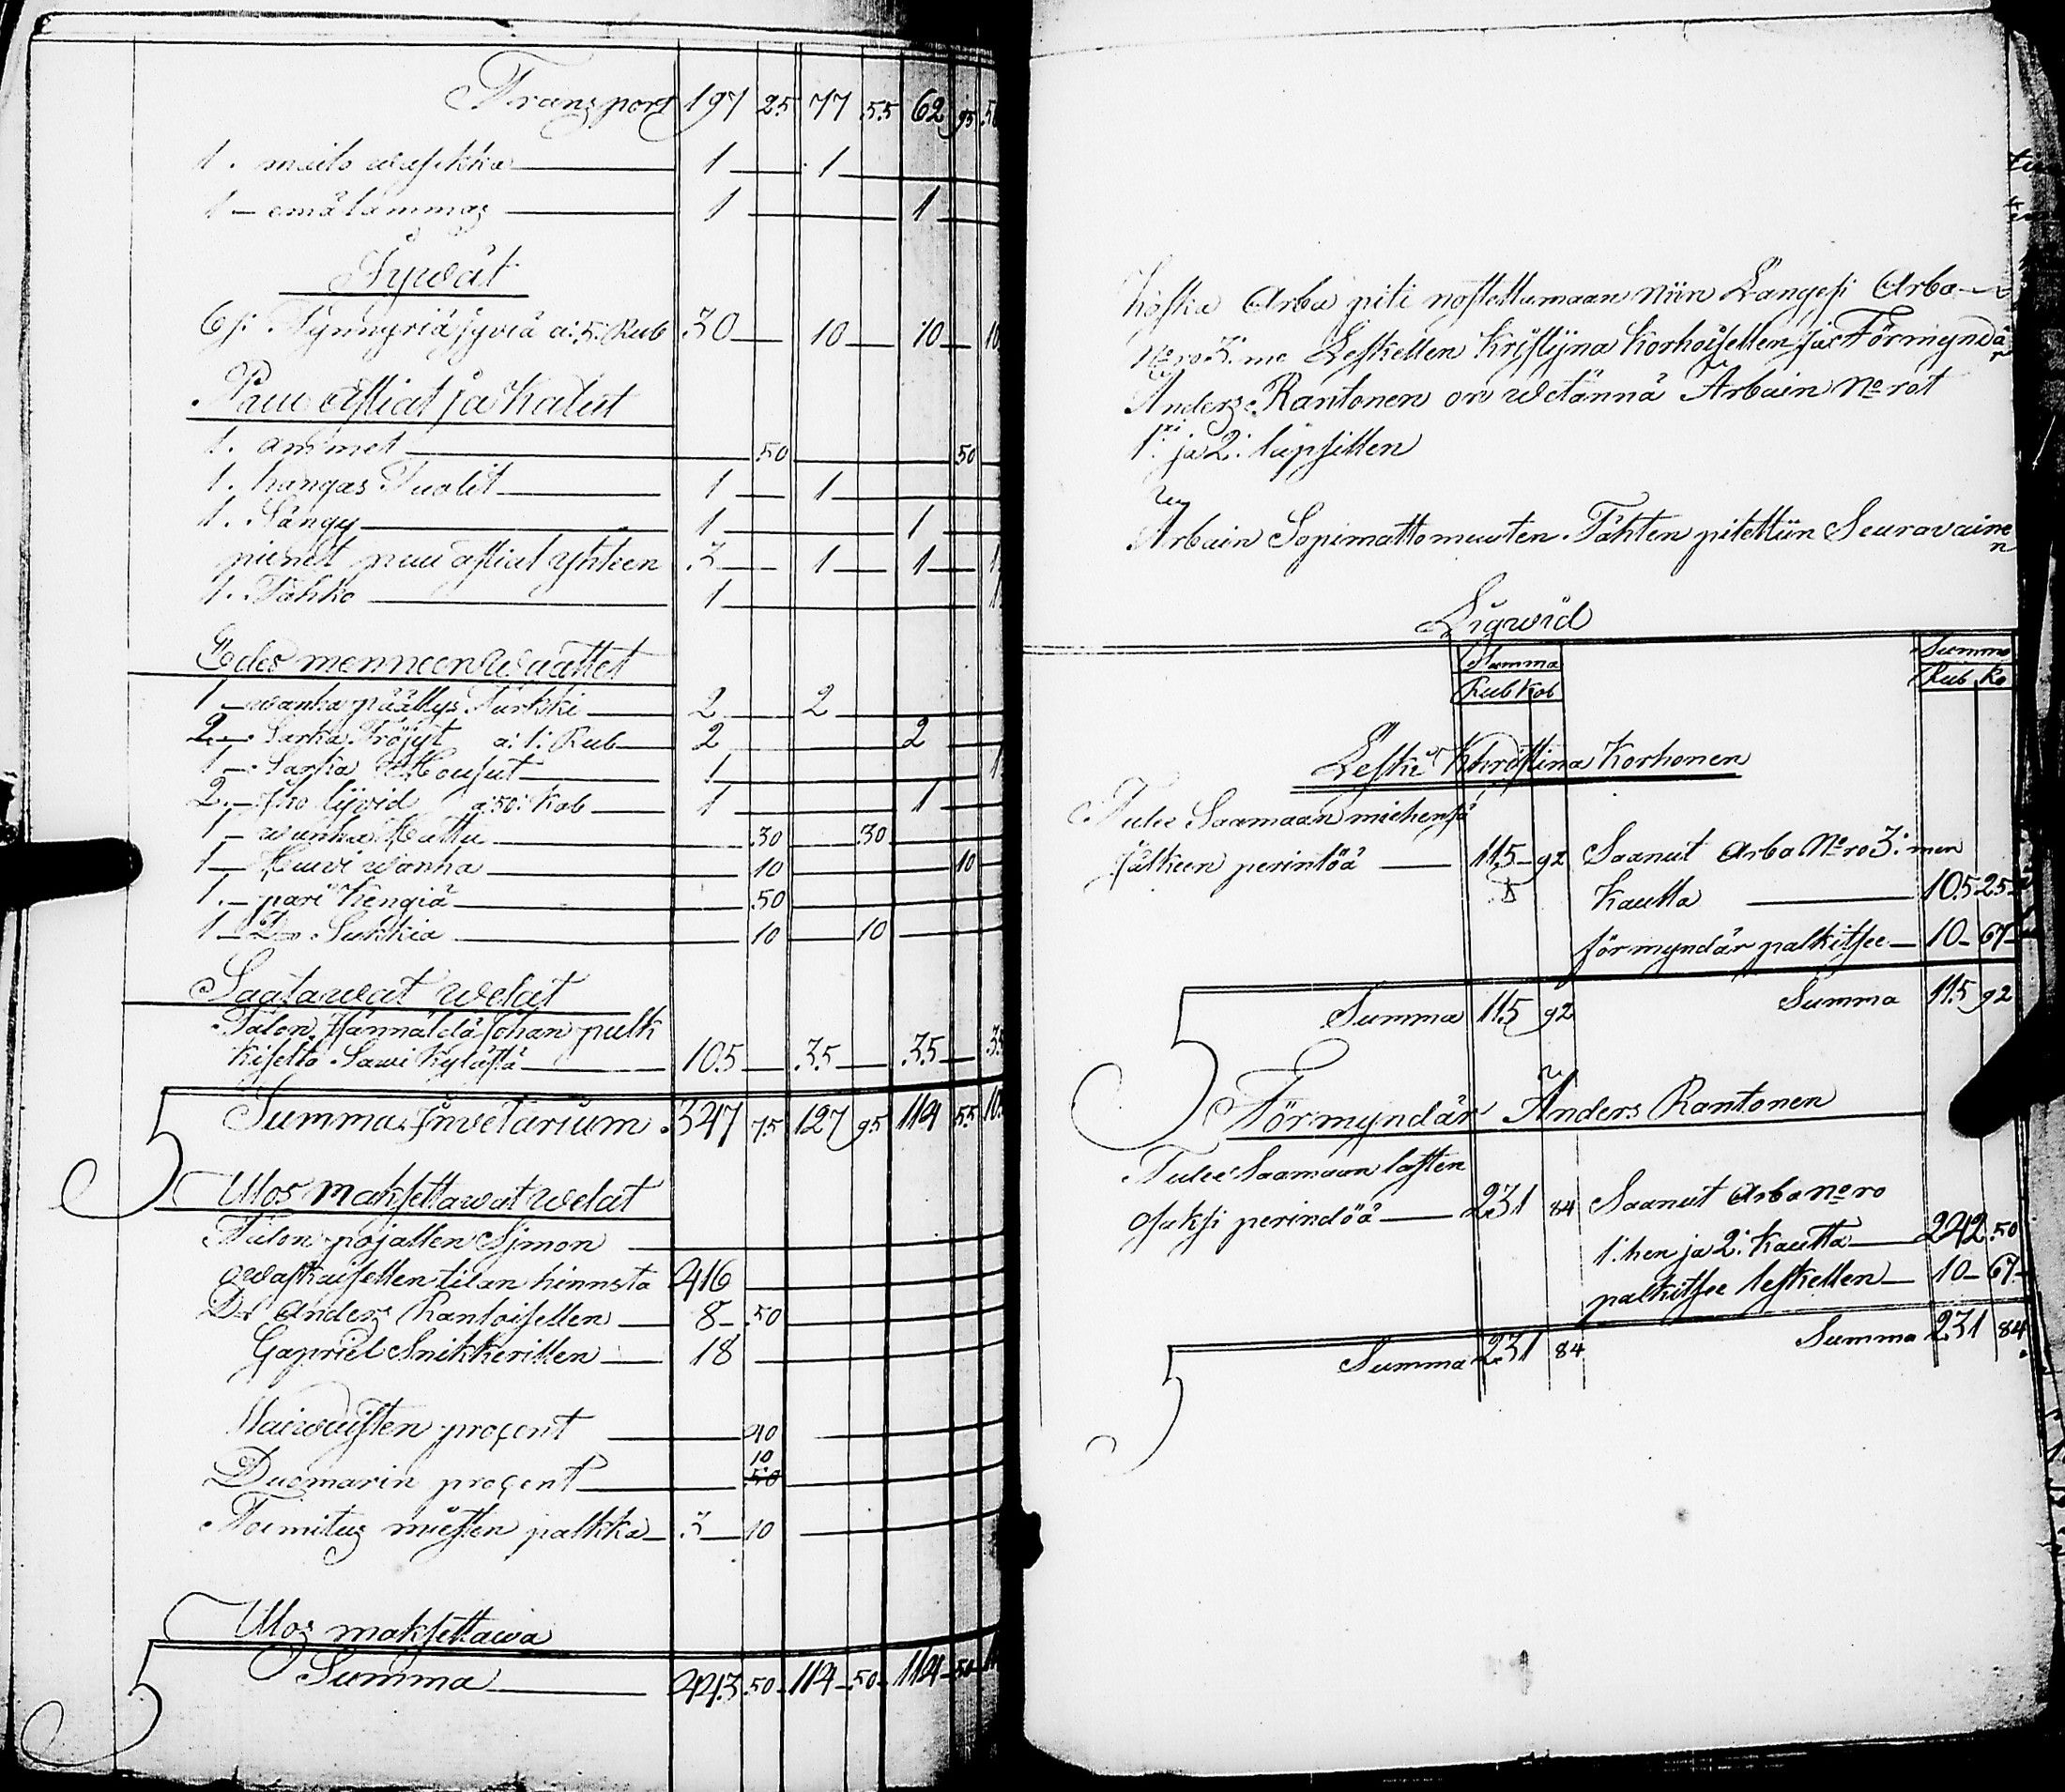 Transport 197 25 77 55 62 95 50
1. maito wasikka 1 1
1 – emälammaz 1 1
Jywät
6si Tynnyriä jyviä a: 5: Rub 30 10 10 10
Puu Astiat ja Kalut
1. ammet 50 50
1. kangas Tuolit 1 1
1. Sängy 1 1
pienet puu astiat yhteen 3 1 1 1
1. Tahko 1 1
Edes menneen Waattet
1 – wanha päällys Turkki 2 2
2 – Sarka Tröjyt a: 1: Rub 2 2
1 – Sarka Housut 1 1
2 – Iho lijvid a: 50: Kob 1 1
1 – wanha Kattu 30 30
1 – Huivi wanha 10 10
1. – pari Kengiä 50
1 – Do Sukkia 10 10
Saatawat welat
Talon Isännäldä Johan pulk
kiselta Sawi Kylästä 105 35 35 35
Summa Inwetarium 347 75 127 95 114 55 10
Ulos maksettawat welat
Talon pojallen Simon
Owaskaisellen tilan hinnsta 416
Do Anders Rantoisellen 8 50
Gapriel Snikkerillen 18
Vaiwaisten proçent 40
10
Duomarin proçent 50
Toimituz miesten palkka 3 10
Uloz maksettawa
Summa 443 50 114 50 114 50 11
Koska Arba piti nostettamaan niin Langesi Arba
No ro 3: me Leskellen Kristijna Korhoisellen ja Förmyndär
Anders Rantonen on wetännä Arbain No rot
1:xi ja 2: lapsillen
Arbain Sopimattomuuten Tähten pitettiin Seuravainen
Liqwid
Summa Summa
Rub Kob Rub Ko
Leski Khristina Korhonen
Tulee Saamaan miehensä
jälkeen perintöä 115 92 Saanut Arba No ro 3: men
Kautta 105 25
förmyndär palkitsee 10 67
Summa 115 92 Summa 115 92
Förmyndär Anders Rantonen
Tulee Saamaan lasten
osaksi perindöä 231 84 Saanut Arba No ro
1: hen ja 2: Kautta 242 50
palkitsee leskellen 10 67
Summa 231 84 Summa 231 84